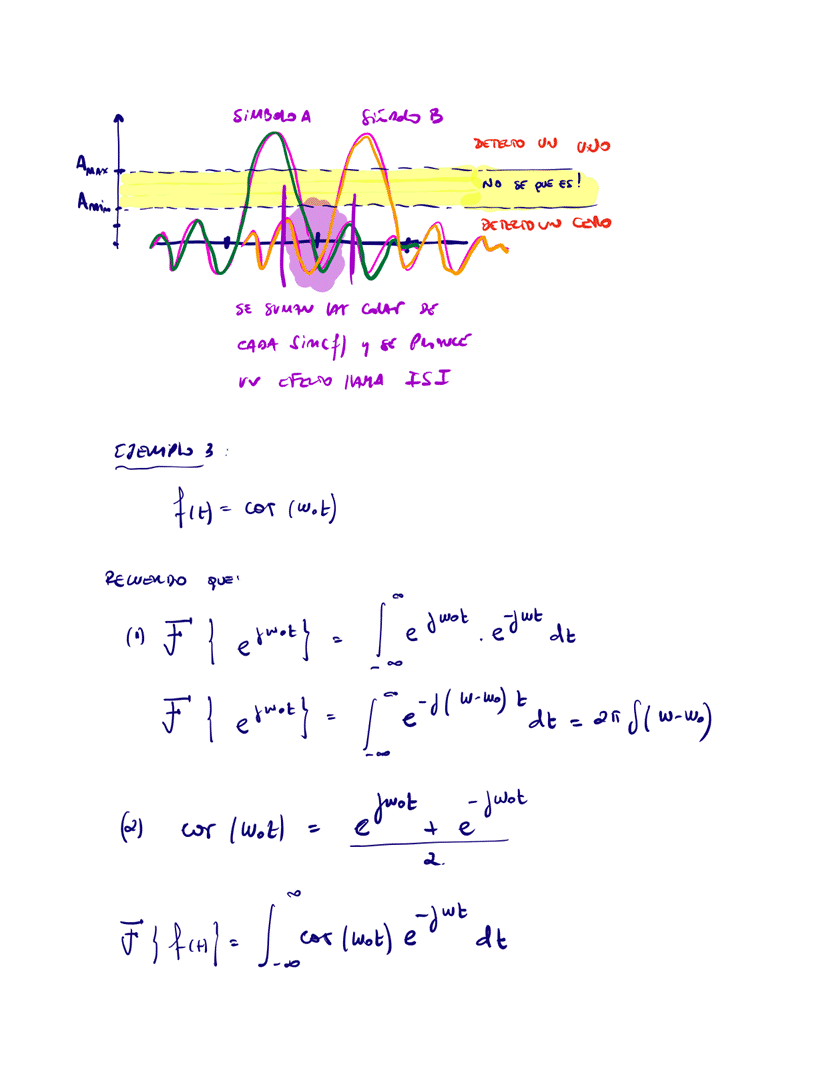 SIMBOLO A SIMBOLO B
DETECTO UN UNO
A MAX
NO SE QUE ES!
A min
DETECTO UN CERO
SE SUMAN LAS COLAS DE
CADA SINC(f) y SE PRODUCE
UN EFECTO LLAMA ISI
EJEMPLO 3:
f(t) = cos (w₀t)
RECUERDO QUE:
(1) F { e^{jw₀t} } = ∫_{-∞}^{∞} e^{jw₀t} . e^{-jwt} dt
F { e^{jw₀t} } = ∫_{-∞}^{∞} e^{-j(w-w₀)t} dt = 2π δ(w-w₀)
(2) cos (w₀t) = (e^{jw₀t} + e^{-jw₀t}) / 2.
F { f(t) } = ∫_{-∞}^{∞} cos (w₀t) e^{-jwt} dt